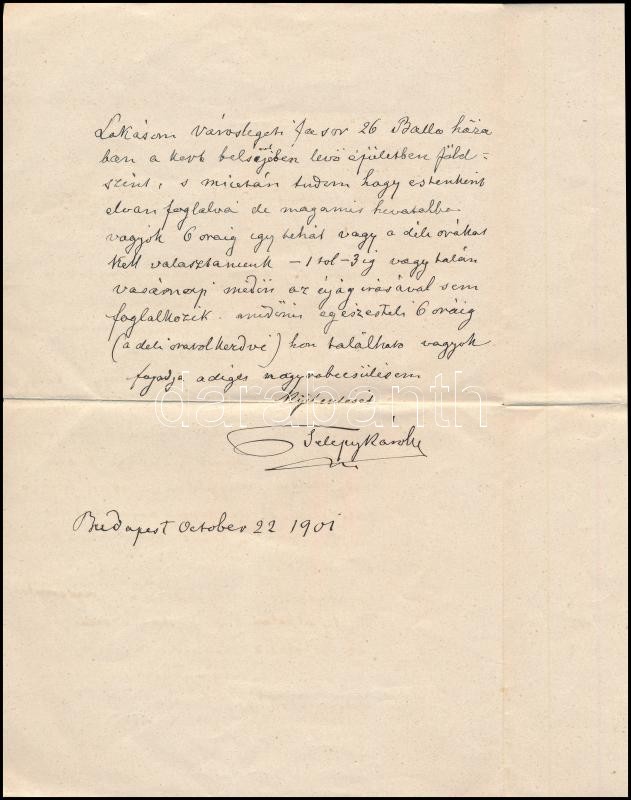 Lakásom városlegeti fasor 26 Ballo háza
ban a kert belsejében levő épületben föld-
szint, s miután tudom hogy estenként
elvan foglalva de magamis hivatalba
vagyok 6 oraig igy tehát vagy a déli orákat
kell valasztanunk -1 tol-3ig vagy talán
vasárnapi midőn az ujág irásával sem
foglalkozik. amidőn egészesteli 6 oráig
(a deli oratol kezdve) hon található vagyok
fogadja adigis nagyrabecsülésem
kijelentését
Telepy Károly
Budapest October 22 1901
darabanth